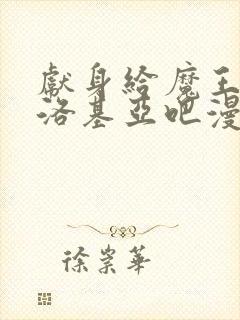 獻身給魔王
洛基亞吧漫
徐崇華